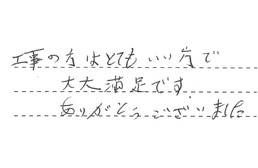 工事の方はとてもいい方で
大大満足です.
ありがとうございました